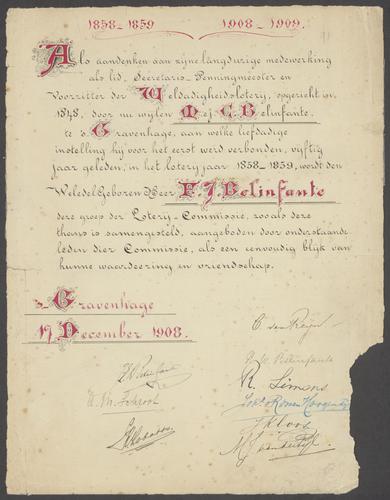 1858-1859 1908-1909.
Als aandenken aan zijne langdurige medewerking
als lid, Secretaris-Penningmeester en
Voorzitter der Weldadigheidsloterij, opgericht in
1848, door nu wijlen Mej. C. Belinfante.
te 's Gravenhage, aan welke liefdadige
instelling hij voor het eerst werd verbonden, vijftig
jaar geleden, in het loterijjaar 1858-1859, wordt den
WeledelGeboren Heer F. J. Belinfante
deze groep der Loterij-Commissie, zooals deze
thans is samengesteld, aangeboden door onderstaande
leden dier Commissie, als een eenvoudig blijk van
hunne waardeering en vriendschap.
's-Gravenhage
17 December 1908.
Belinfante
R. Simons
J Kloos